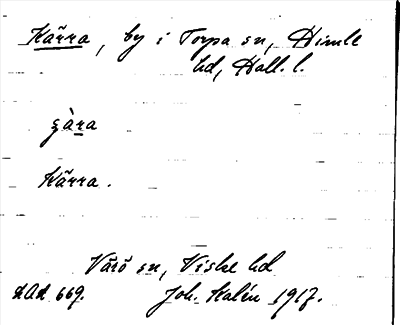 Kärra, by i Torpa sn, Himle
hd, Hall. l.
gàra
Kärra.
Värö sn, Viske hd
LAL 669. Joh. Kalén 1917.